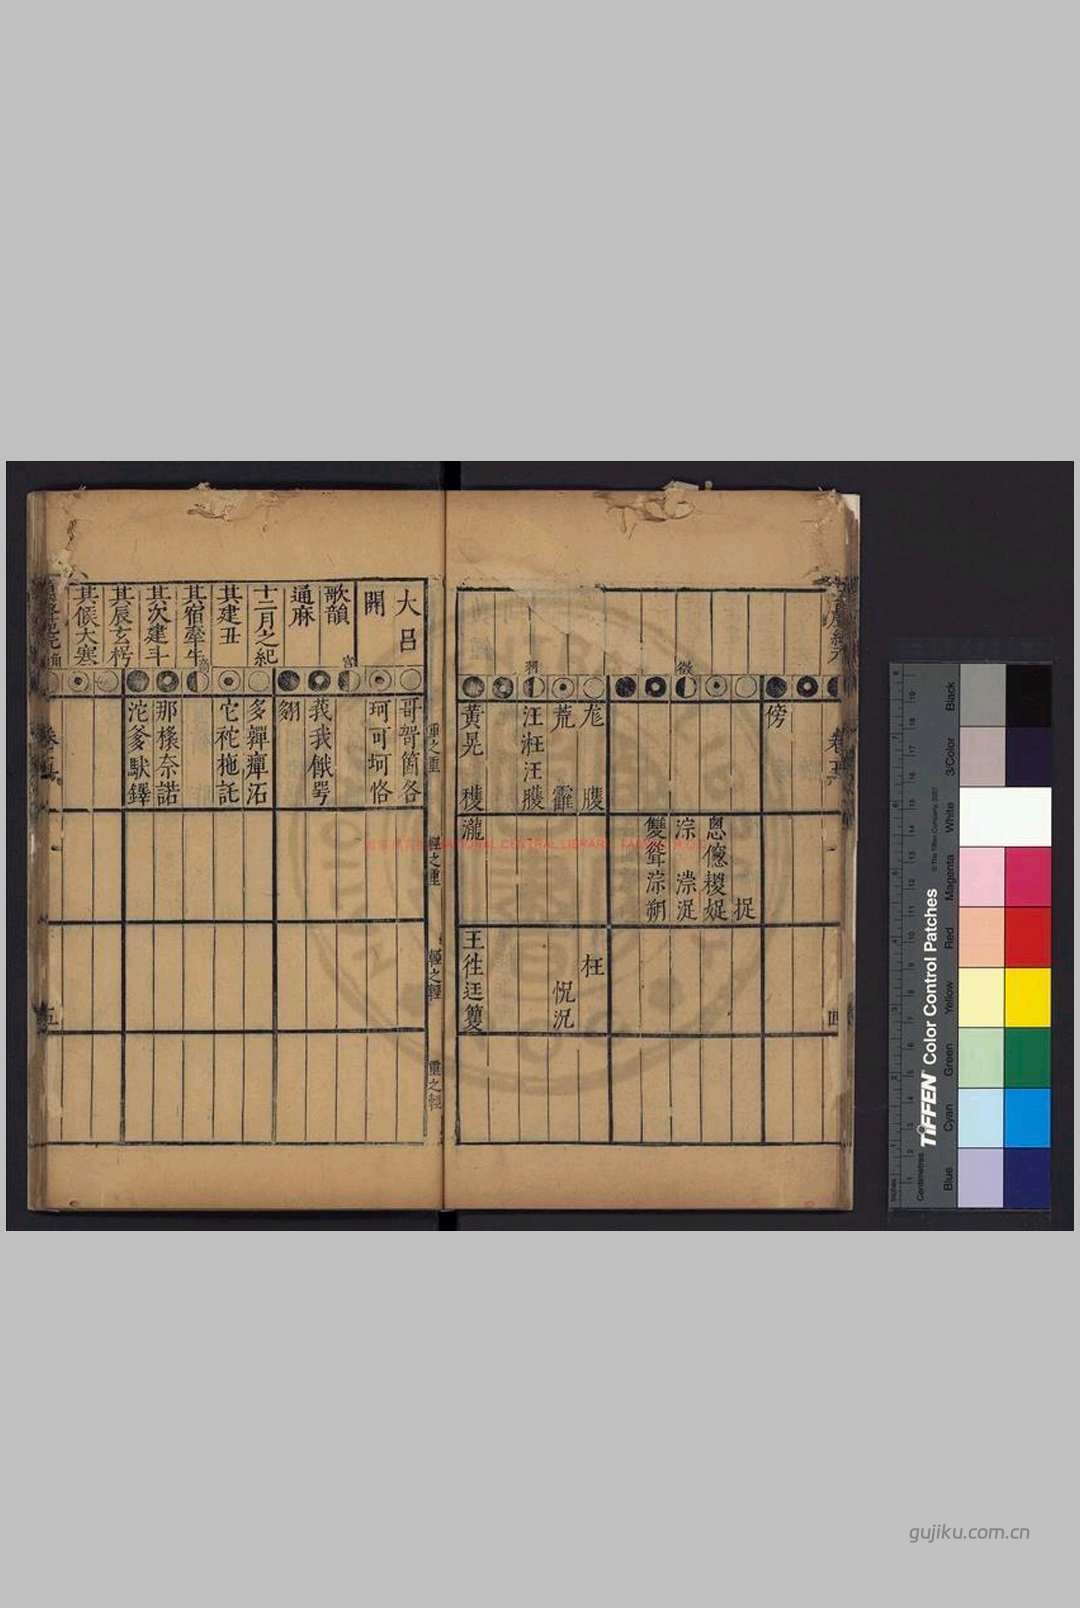 徵
羽
傍
捉
恖傯糉娖
淙　漴浞
雙聳淙朔
尨　　臒
荒　　霍
汪汪汪臒
黃晃　穫
瀧
枉
怳況
王徃迋籰
四
大呂
開
歌韻
通麻
十二月之紀
其建丑
其宿牽牛
其次建斗
其辰玄枵
其候大寒
宮
商
重之重
哥哿箇各
珂可坷恪
莪我餓咢
翗
多嚲癉沰
它袉拖託
那橠奈諾
沱爹馱鐸
輕之重
輕之輕
重之輕
卷
五
NATIONAL CENTRAL LIBRARY
TIFFEN Color Control Patches
© The Tiffen Company, 2007
Centimetres
Inches
Blue
Cyan
Green
Yellow
Red
Magenta
White
3/Color
Black
gujiku.com.cn